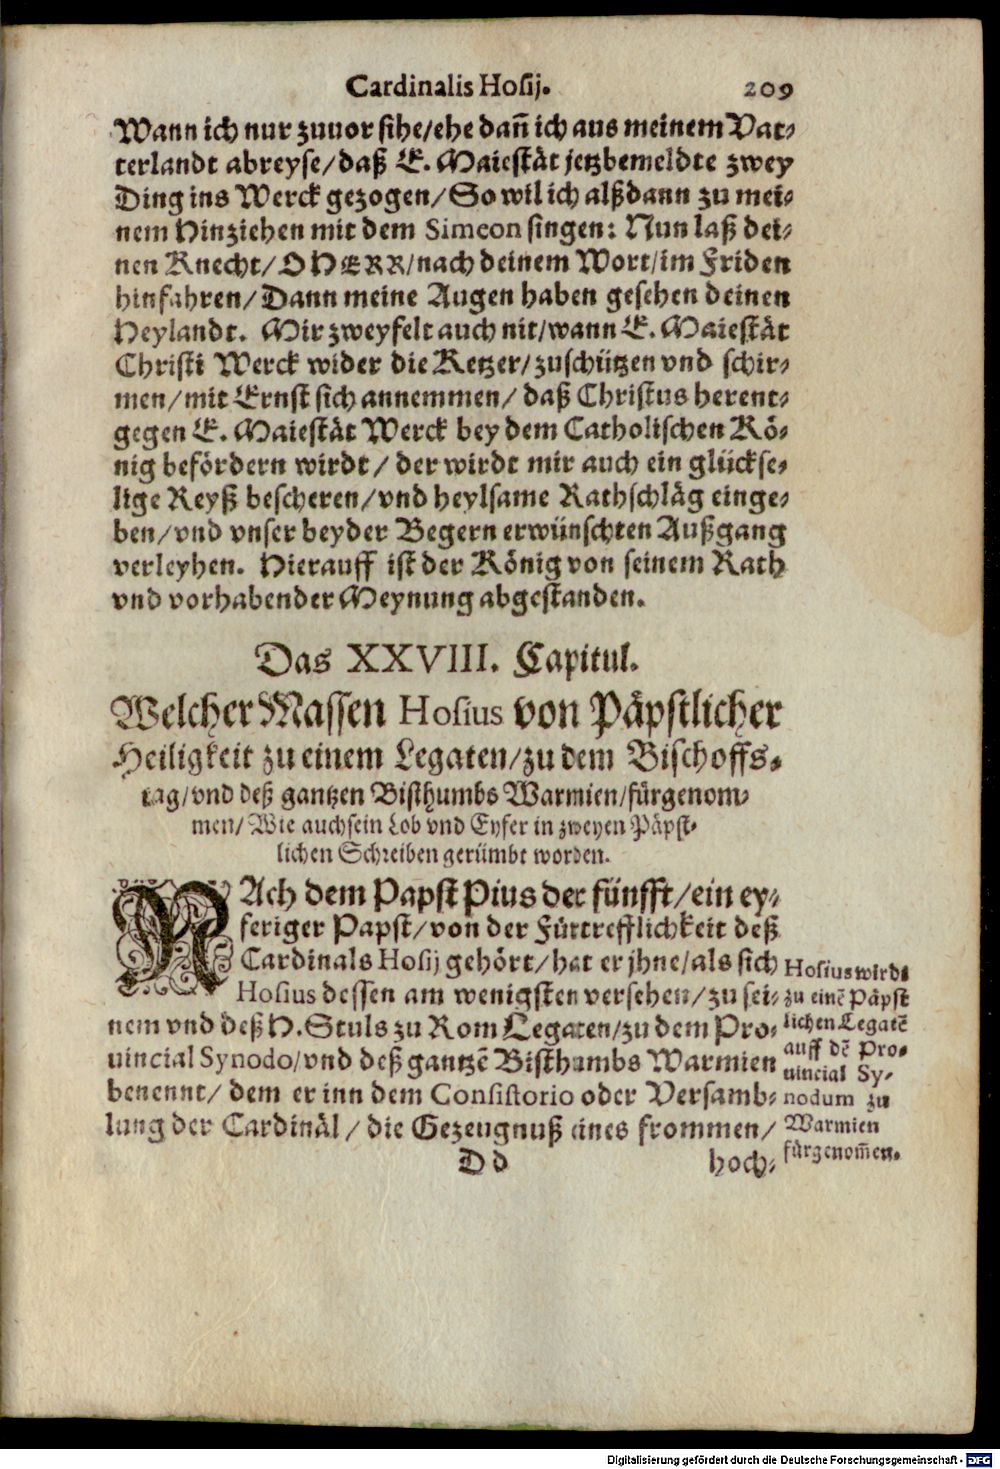 Cardinalis Hosij. 209
Wann ich nur zuuor sihe/ehe dañ ich aus meinem Vat-
terlandt abreyse/daß E. Maiestät jetzbemeldte zwey
Ding ins Werck gezogen/So wil ich alßdann zu mei-
nem Hinziehen mit dem Simeon singen: Nun laß dei-
nen Knecht/O HERR/nach deinem Wort/im Friden
hinfahren/Dann meine Augen haben gesehen deinen
Heylandt. Mir zweyfelt auch nit/wann E. Maiestät
Christi Werck wider die Ketzer/zuschützen vnd schir-
men/mit Ernst sich annemmen/daß Christus herent-
gegen E. Maiestät Werck bey dem Catholischen Kö-
nig befördern wirdt/der wirdt mir auch ein glückse-
lige Reyß bescheren/vnd heylsame Rathschläg einge-
ben/vnd vnser beyder Begern erwünschten Außgang
verleyhen. Hierauff ist der König von seinem Rath
vnd vorhabender Meynung abgestanden.
Das XXVIII. Capitul.
Welcher Massen Hosius von Päpstlicher
Heiligkeit zu einem Legaten/zu dem Bischoffs-
tag/vnd deß gantzen Bisthumbs Warmien/fürgenom-
men/Wie auch sein Lob vnd Eyfer in zweyen Päpst-
lichen Schreiben gerümbt worden.
NAch dem Papst Pius der fünfft/ein ey-
feriger Papst/von der Fürtrefflichkeit deß
Cardinals Hosij gehört/hat er jhne/als sich
Hosius dessen am wenigsten versehen/zu sei-
nem vnd deß H. Stuls zu Rom Legaten/zu dem Pro-
uincial Synodo/vnd deß gantzẽ Bisthumbs Warmien
benennt/dem er inn dem Consistorio oder Versamb-
lung der Cardinäl/die Gezeugnuß eines frommen/
Hosius wird
zu einẽ Päpst
lichen Legatẽ
auff dẽ Pro-
uincial Sy-
nodum zu
Warmien
fürgenom̃en.
D d hoch-
Digitalisierung gefördert durch die Deutsche Forschungsgemeinschaft - DFG